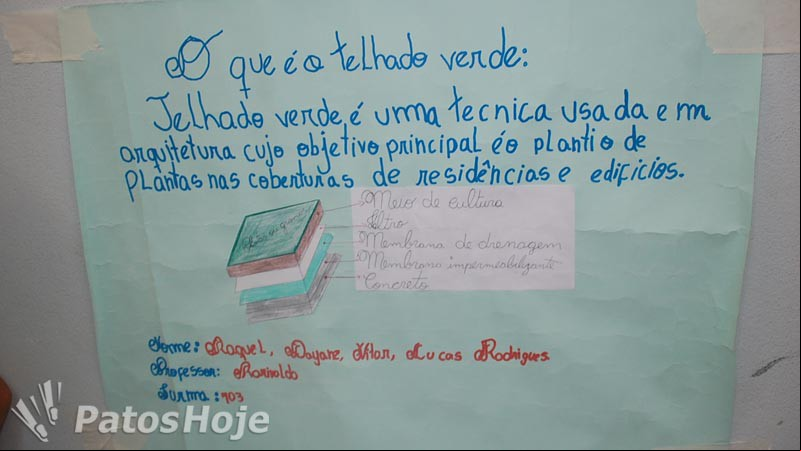 O que é o telhado verde:
Telhado verde, é uma tecnica usada em
arquitetura cujo objetivo principal é o plantio de
plantas nas coberturas de residências e edificios.
Meio de cultura
Filtro
Membrana de drenagem
Membrana impermeabilizante
Concreto
Nome: Raquel, Dayane, Lucas Rodrigues
Professor: Ronaldo
Turma: 703
PatosHoje